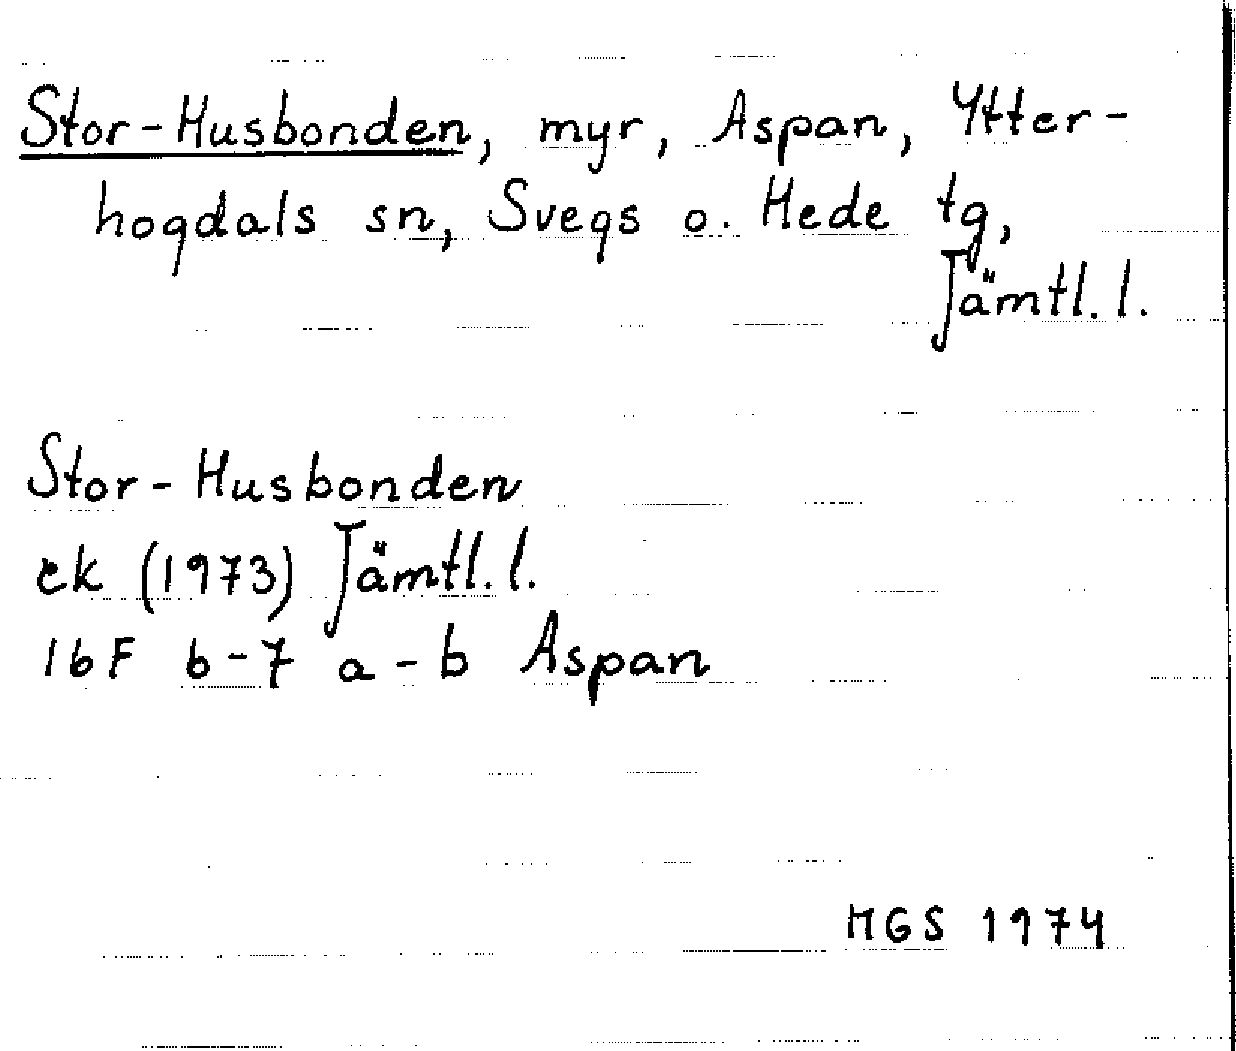 Stor-Husbonden, myr, Aspan, Ytter-
hogdals sn, Svegs o. Hede tg,
Jämtl. l.
Stor-Husbonden
ek (1973) Jämtl. l.
16F 6-7 a-b Aspan
MGS 1974